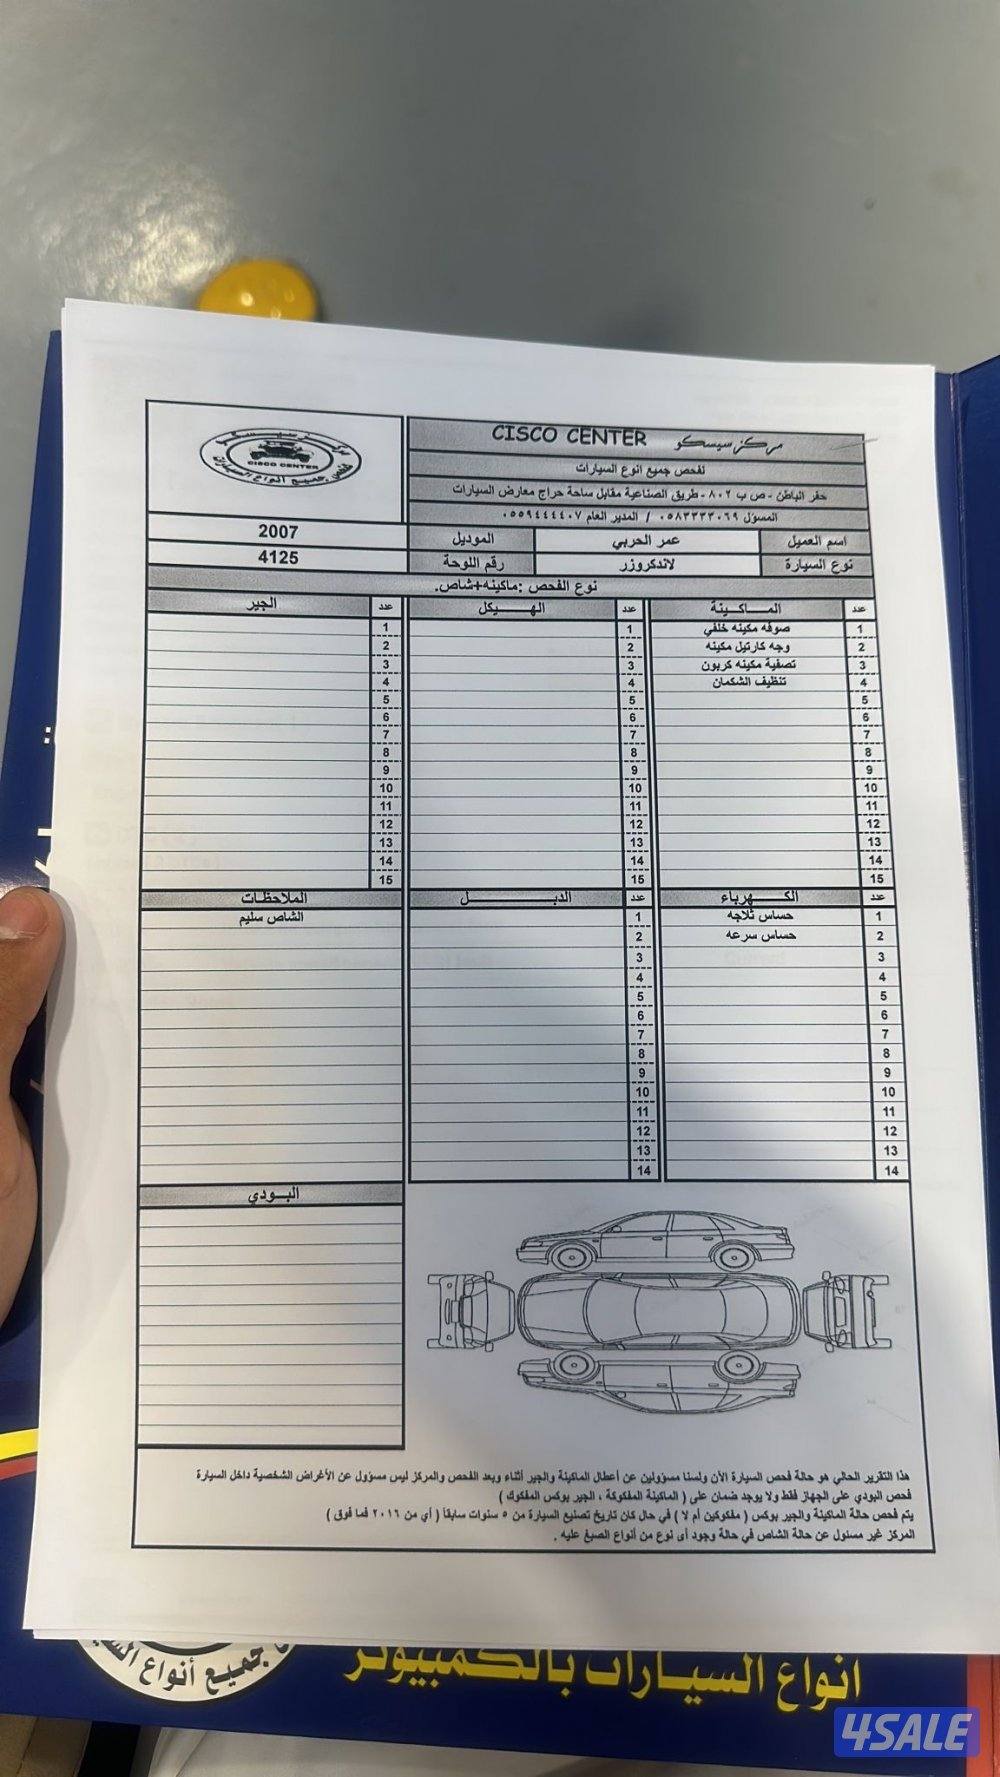 مركز سيسكو CISCO CENTER
لفحص جميع انوع السيارات
حفر الباطن - ص ب ٨٠٢ - طريق الصناعية مقابل ساحة حراج معارض السيارات
المسؤل ٠٥٨٣٣٣٣٠٦٩ / المدير العام ٠٥٥٩٤٤٤٤٠٧
CISCO CENTER
اسم العميل عمر الحربي الموديل 2007
نوع السيارة لاندكروزر رقم اللوحة 4125
نوع الفحص :ماكينه+شاص.
عدد المـــاكـينة عدد الهـــيكل عدد الجير
1 صوفه مكينه خلفي 1 1
2 وجه كارتيل مكينه 2 2
3 تصفية مكينه كربون 3 3
4 تنظيف الشكمان 4 4
5 5 5
6 6 6
7 7 7
8 8 8
9 9 9
10 10 10
11 11 11
12 12 12
13 13 13
14 14 14
15 15 15
عدد الكـــهرباء عدد الدبـــل الملاحظـات
1 حساس ثلاجه 1 الشاص سليم
2 حساس سرعه 2
3 3
4 4
5 5
6 6
7 7
8 8
9 9
10 10
11 11
12 12
13 13
14 14
البـــودي
هذا التقرير الحالي هو حالة فحص السيارة الأن ولسنا مسؤولين عن أعطال الماكينة والجير أثناء وبعد الفحص والمركز ليس مسؤول عن الأغراض الشخصية داخل السيارة
فحص البودي على الجهاز فقط ولا يوجد ضمان على ( الماكينة المفكوكة ، الجير بوكس المفكوك )
يتم فحص حالة الماكينة والجير بوكس ( مفكوكين أم لا ) في حال كان تاريخ تصنيع السيارة من ٥ سنوات سابقاً ( أي من ٢٠١٦ فما فوق )
المركز غير مسئول عن حالة الشاص في حالة وجود أى نوع من أنواع الصبغ عليه .
جميع أنواع
انواع السيارات بالكمبيوتر
4SALE